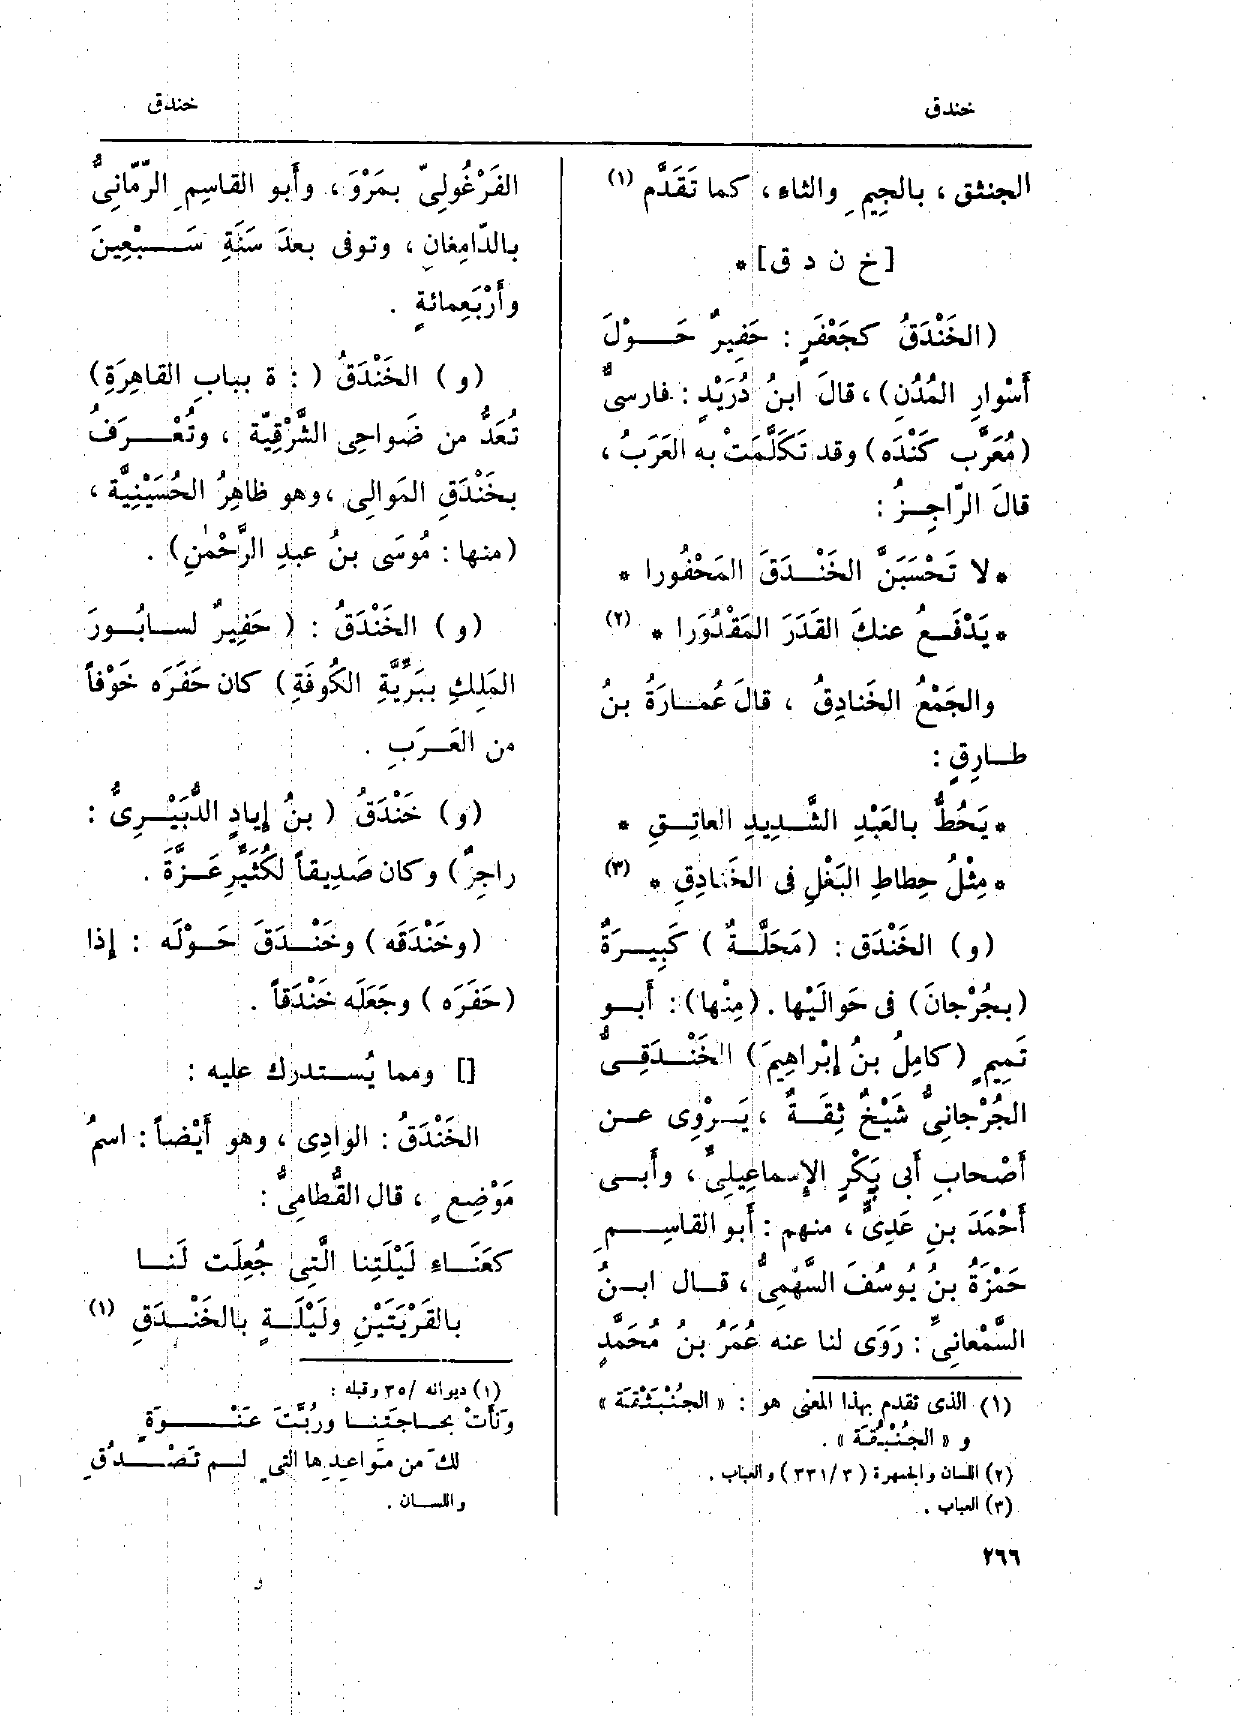 خندق
خندق
الجنثق ، بالجِيمِ والثاء ، كما تَقَدَّم (١)
[خ ن د ق] *
(الخَنْدَقُ كجَعْفَرٍ : حَفِيرٌ حَوْلَ
أَسْوارِ المُدُنِ) ، قالَ ابنُ دُرَيْدٍ : فارسىٌّ
(مُعَرَّب كَنْدَه) وقد تَكَلَّمَتْ به العَرَبُ ،
قالَ الرّاجِزُ :
* لا تَحْسَبَنَّ الخَنْدَقَ المَحْفُورا *
* يَدْفَعُ عنكَ القَدَرَ المَقْدُورَا * (٢)
والجَمْعُ الخَنادِقُ ، قالَ عُمارَةُ بنُ
طارِقٍ :
* يَحُطُّ بالعَبْدِ الشَّدِيدِ العاتِقِ *
* مِثْلُ حِطاطِ البَغْلِ فى الخَنادِقِ * (٣)
(و) الخَنْدَق : (مَحَلَّةٌ) كَبِيرَةٌ
(بجُرْجانَ) فى حَوالَيْها . (مِنْها) : أَبو
تَمِيمٍ (كامِلُ بنُ إِبْراهِيمَ) الخَنْدَقِىُّ
الجُرْجانِىُّ شَيْخٌ ثِقَةٌ ، يَرْوِى عن
أَصْحابِ أَبى بَكْرٍ الإِسماعِيلِىِّ ، وأَبى
أَحْمَدَ بنِ عَدِىٍّ ، منهم : أَبو القاسِمِ
حَمْزَةُ بنُ يُوسُفَ السَّهْمِىُّ ، قال ابنُ
السَّمْعانِىِّ : رَوَى لنا عنه عُمَرُ بنُ مُحَمَّدٍ
(١) الذى تقدم بهذا المعنى هو : « الجُنْبَثْقَة »
و « الجُنْبُقَة » .
(٢) اللسان والجمهرة (٣/ ٣٣١) والعباب .
(٣) العباب .
٢٦٦
الفَرْغُولِىّ بمَرْوَ ، وأَبو القاسِمِ الرّمّانِىُّ
بالدّامِغانِ ، وتوفى بعدَ سَنَةِ سَبْعِينَ
وأَرْبَعِمائةٍ .
(و) الخَنْدَقُ ( : ة ببابِ القاهِرَةِ)
تُعَدُّ من ضَواحِى الشَّرْقِيّة ، وتُعْرَفُ
بخَنْدَقِ المَوالِى ، وهو ظاهِرُ الحُسَيْنِيَّة ،
(منها : مُوسَى بنُ عبدِ الرَّحْمٰنِ) .
(و) الخَنْدَقُ : ( حَفِيرٌ لسابُورَ
المَلِكِ ببَرِّيَّةِ الكُوفَةِ) كان حَفَرَه خَوْفاً
من العَرَبِ .
(و) خَنْدَقُ ( بنُ إِيادٍ الدُّبَيْرِىُّ :
راجِزٌ) وكان صَدِيقاً لكُثَيِّرِ عَزَّةَ .
(وخَنْدَقَه) وخَنْدَقَ حَوْلَه : إذا
(حَفَرَه ) وجَعَلَه خَنْدَقاً .
[] ومما يُستدرك عليه :
الخَنْدَقُ : الوادِى ، وهو أَيْضاً : اسمُ
مَوْضِعٍ ، قال القُطامِىُّ :
كعَنَاء لَيْلَتِنا الَّتِى جُعِلَت لَنا
بالقَرْيَتَيْنِ ولَيْلَةٍ بالخَنْدَقِ (١)
(١) ديوانه /٣٥ وقبله :
وَنَأَتْ بحاجَتِنا ورُبَّتَ عَنْوَةٍ
لكَ من مَواعِدِها التى لم تَصْدُقِ
واللسان .